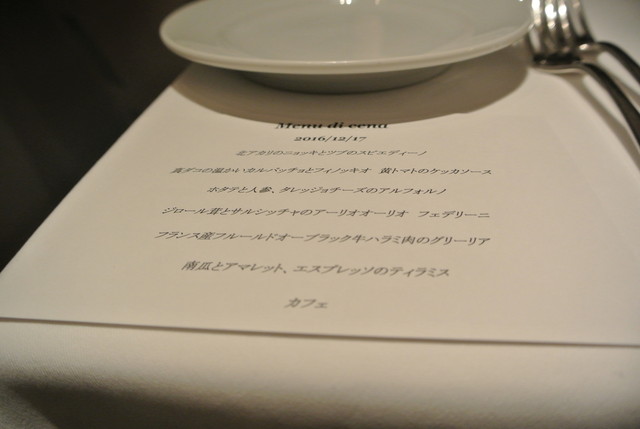 Menu di cena
2016/12/17
北アカリのニョッキとツブのスピエディーノ
真ダコの温かいカルパッチョとフィノッキオ 黄トマトのケッカソース
ホタテと人参、タレッジョチーズのアルフォルノ
ジロール茸とサルシッチャのアーリオオーリオ フェデリーニ
フランス産フルールドオーブラック牛ハラミ肉のグリーリア
南瓜とアマレット、エスプレッソのティラミス
カフェ